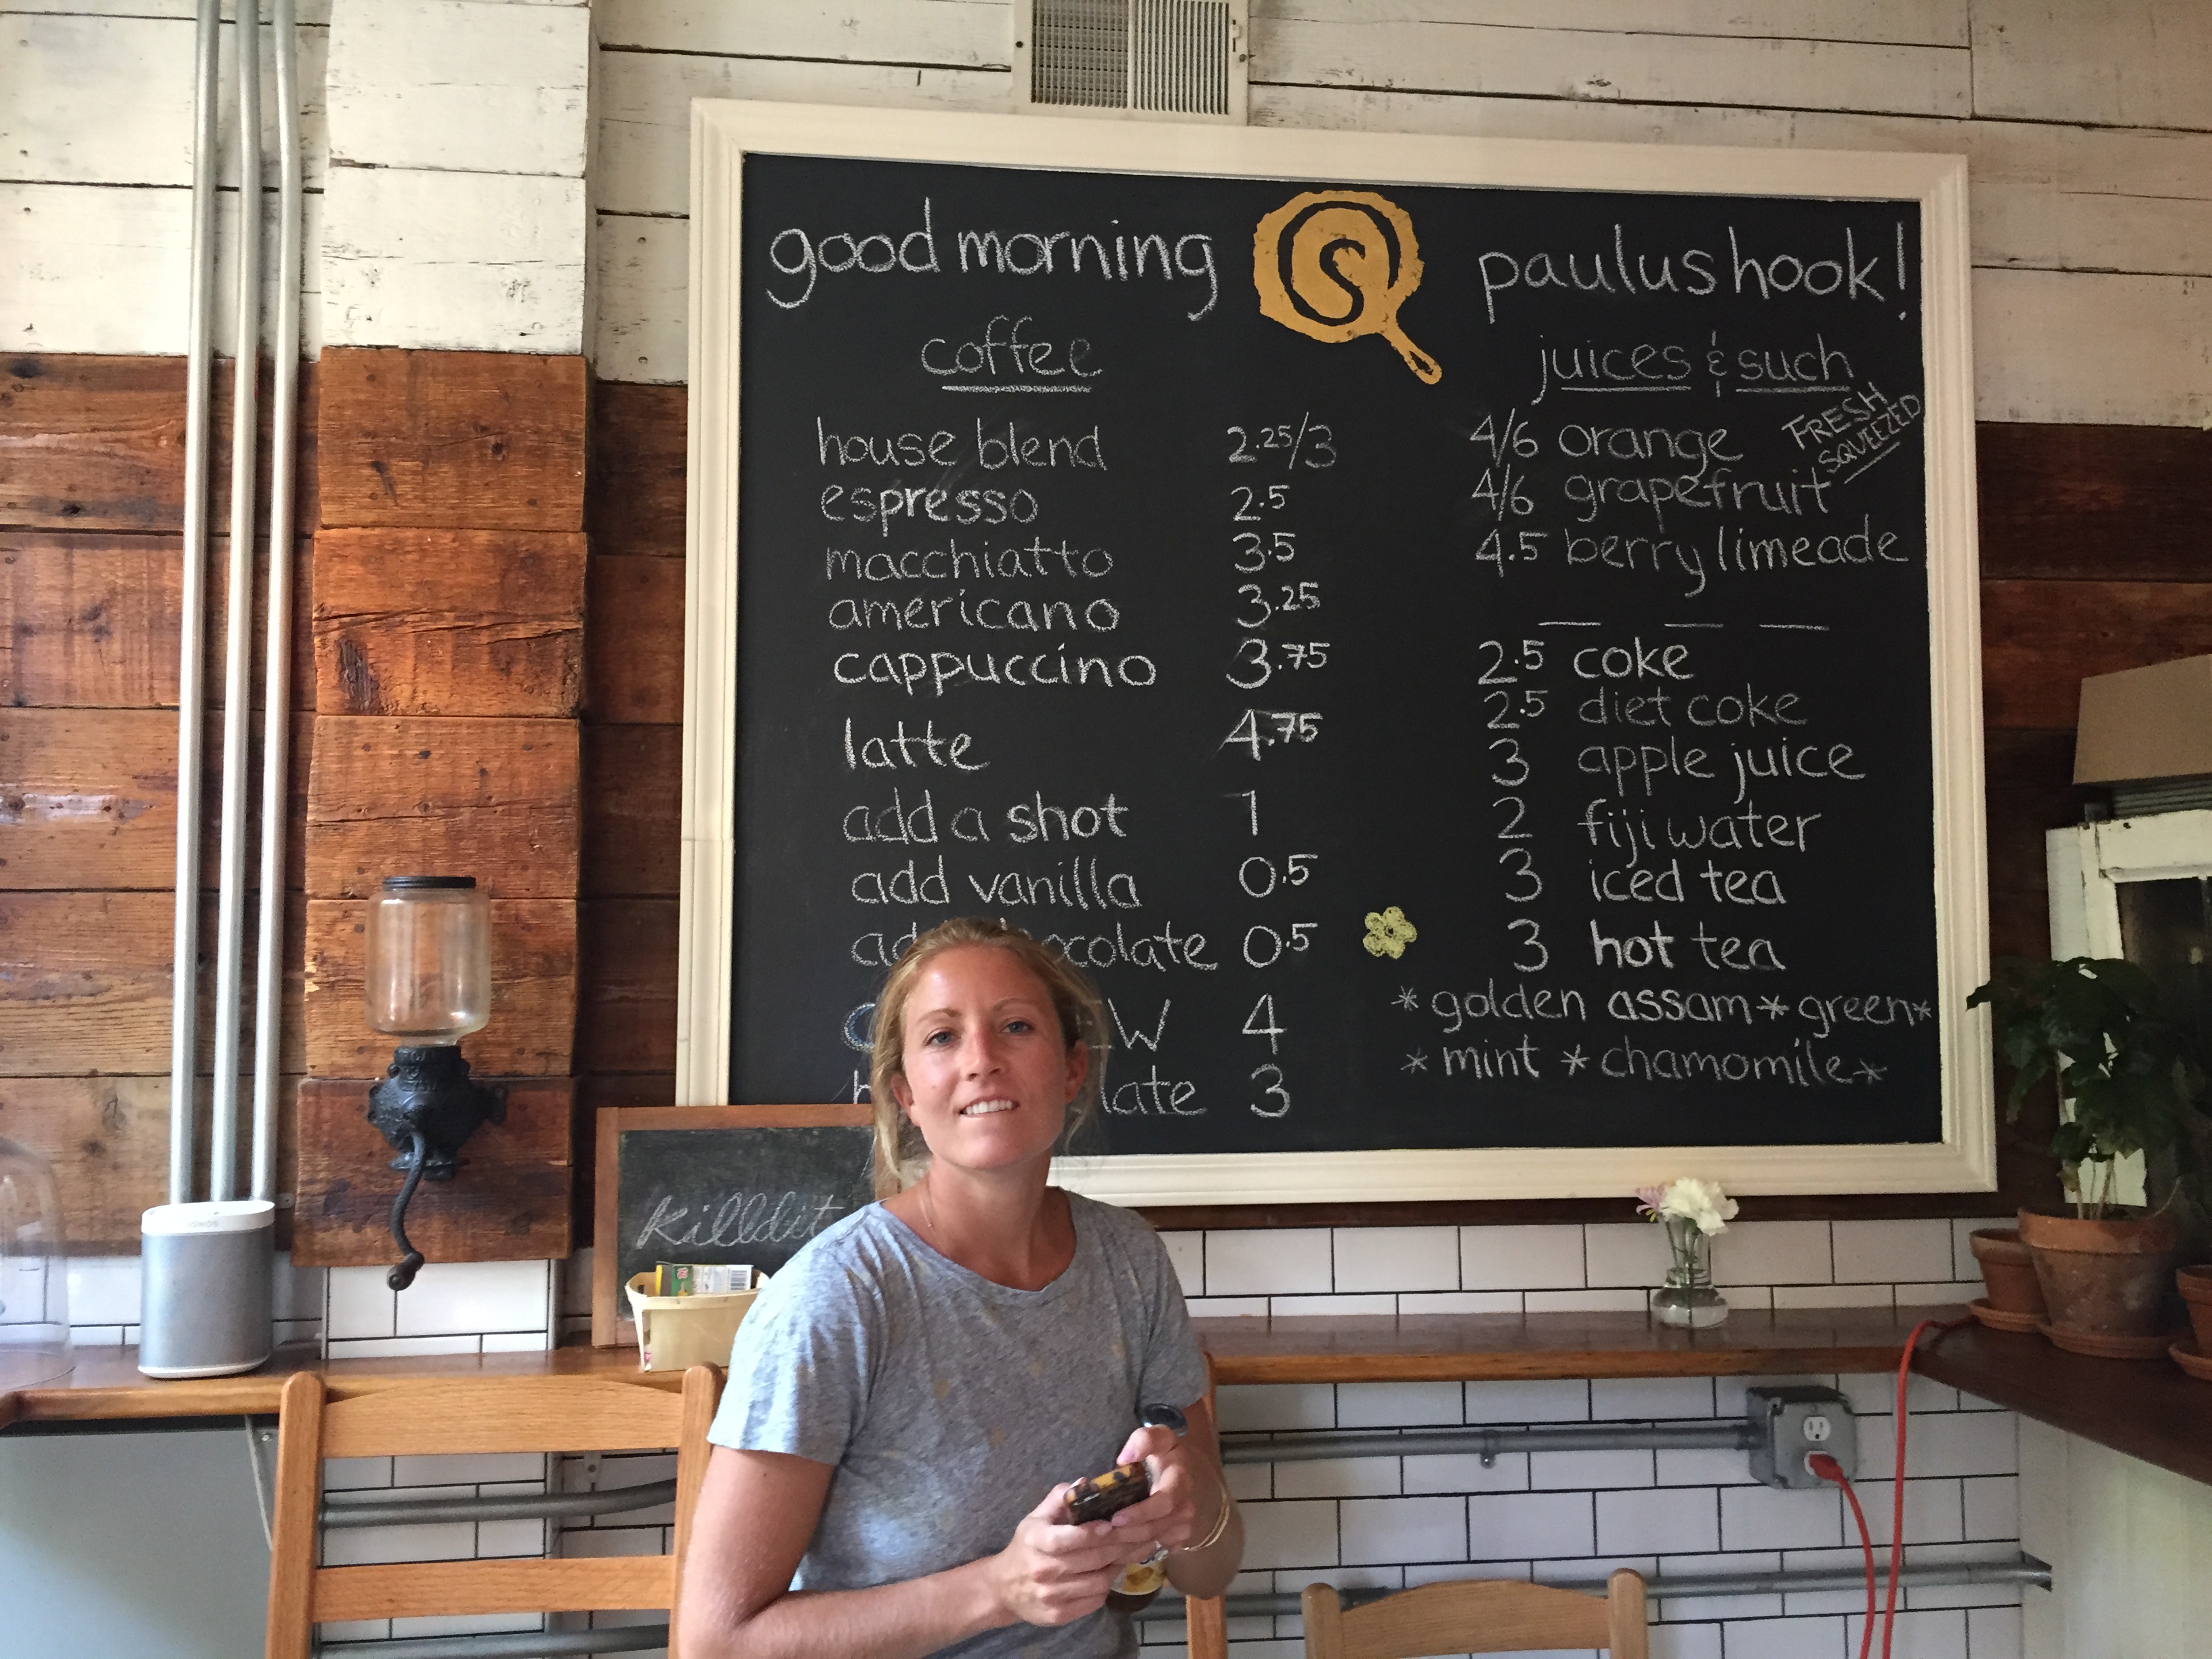 good morning S paulus hook!
coffee
house blend 2.25/3
espresso 2.5
macchiatto 3.5
americano 3.25
cappuccino 3.75
latte 4.75
add a shot 1
add vanilla 0.5
0.5
4
3
juices & such
FRESH SQUEEZED
4/6 orange
4/6 grapefruit
4.5 berry limeade
2.5 coke
2.5 diet coke
3 apple juice
2 fiji water
3 iced tea
3 hot tea
*golden assam*green*
*mint *chamomile*
SONOS